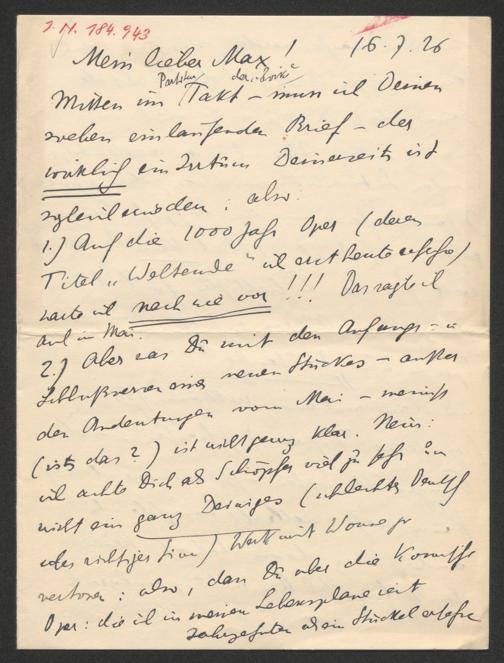 J.N. 184.943
Mein lieber Max! 16.7.26
Partitur der
Mitten im Takt – muss ich Deinen
soeben einlaufenden Brief – der
wirklich ein Irrtum Deinerseits ist
: also
1.) Auf die 1000 Jahr Oper (deren
Titel „Weltende" ich erst heute erfahre)
warte ich nach wie vor!!! Das sagte ich
auch im Mai.
2.) Aber was Du mit den Anfangs- u
Schlussversen eines neuen Stückes – ausser
den Andeutungen vom Mai – meinst
(ists das?) ist nicht ganz klar. Nein:
ich achte Dich als Schöpfer viel zu sehr um
nicht ein ganz Deiniges (schlechtes Deutsch
aber richtiger Sinn) Werk mit Wonne zu
vertonen: also, dass Du aber die Komische
Oper: die ich in meinem Lebensplane seit
Jahrzehnten als ein Stückel